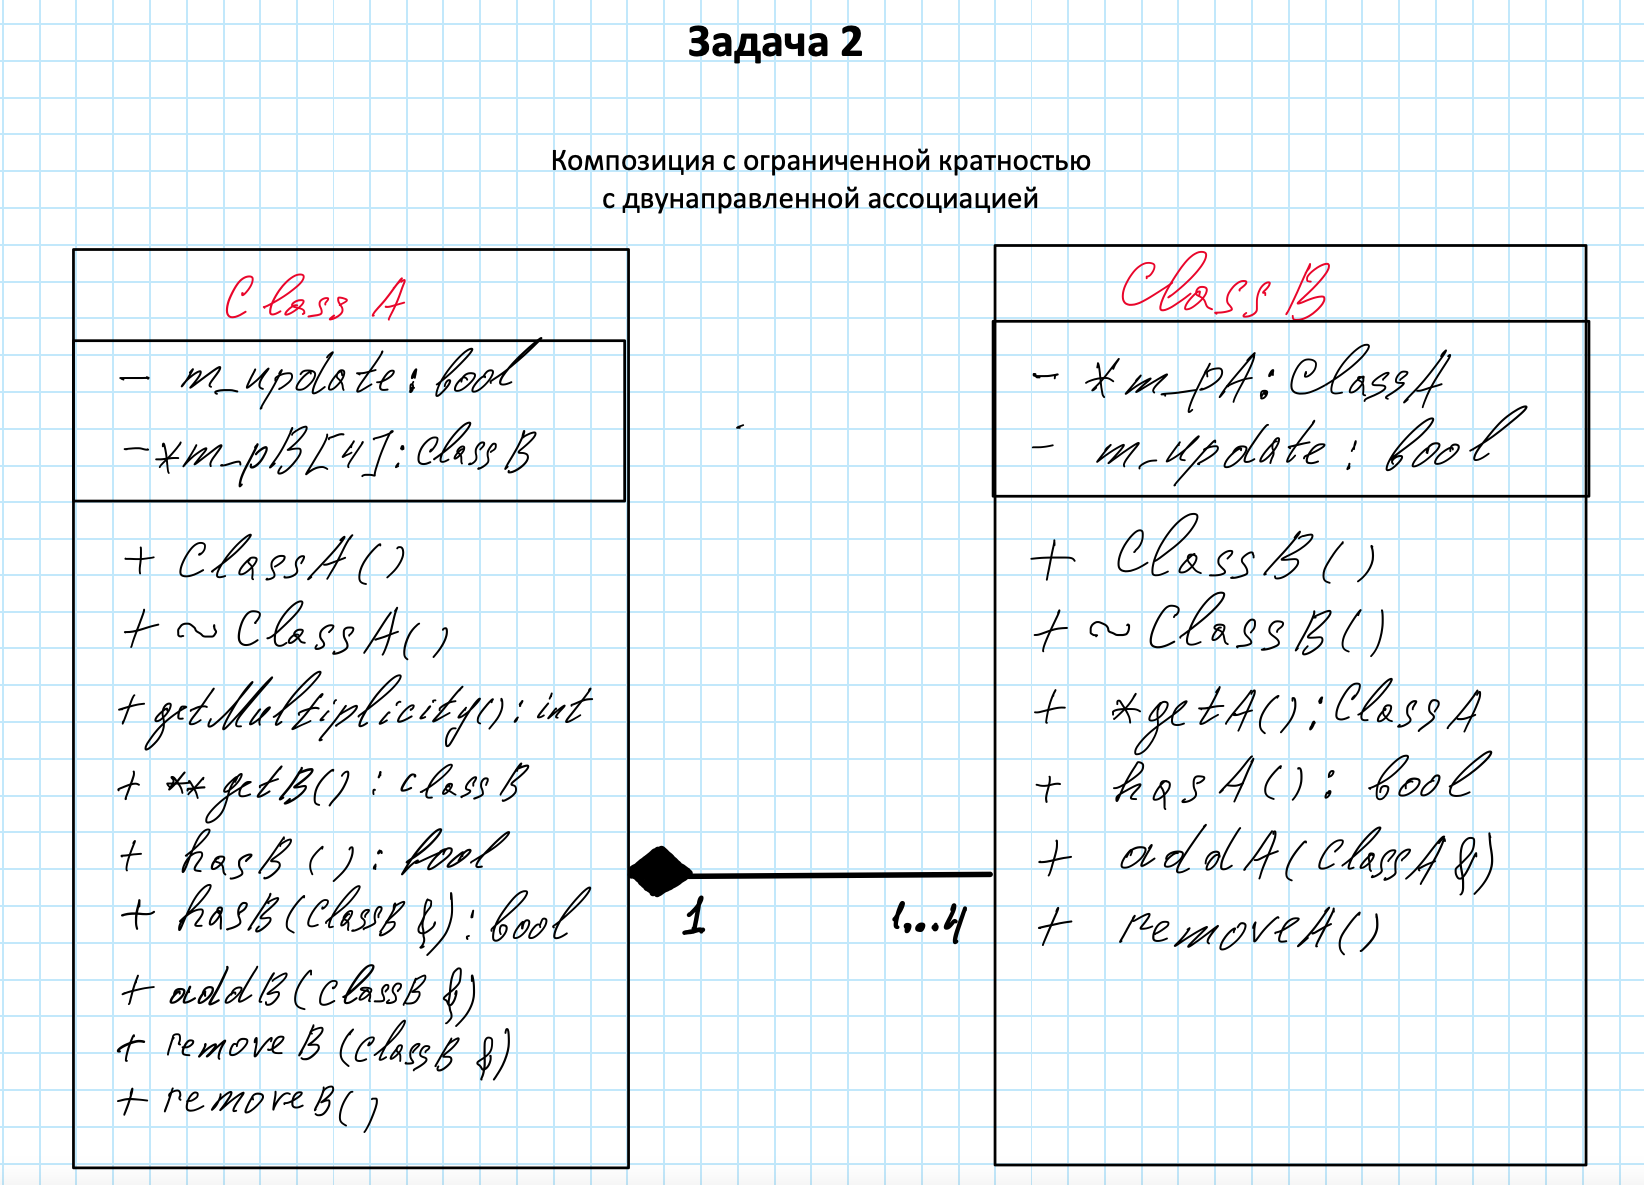 Задача 2
Композиция с ограниченной кратностью
с двунаправленной ассоциацией
Class A
- m_update: bool
- *m_pB[4]: ClassB
+ ClassA()
+ ~ClassA()
+ getMultiplicity(): int
+ **getB(): classB
+ hasB(): bool
+ hasB(ClassB &): bool
+ addB(ClassB &)
+ removeB(ClassB &)
+ removeB()
1
1...4
Class B
- *m_pA: ClassA
- m_update: bool
+ ClassB()
+ ~ClassB()
+ *getA(): ClassA
+ hasA(): bool
+ addA(ClassA &)
+ removeA()